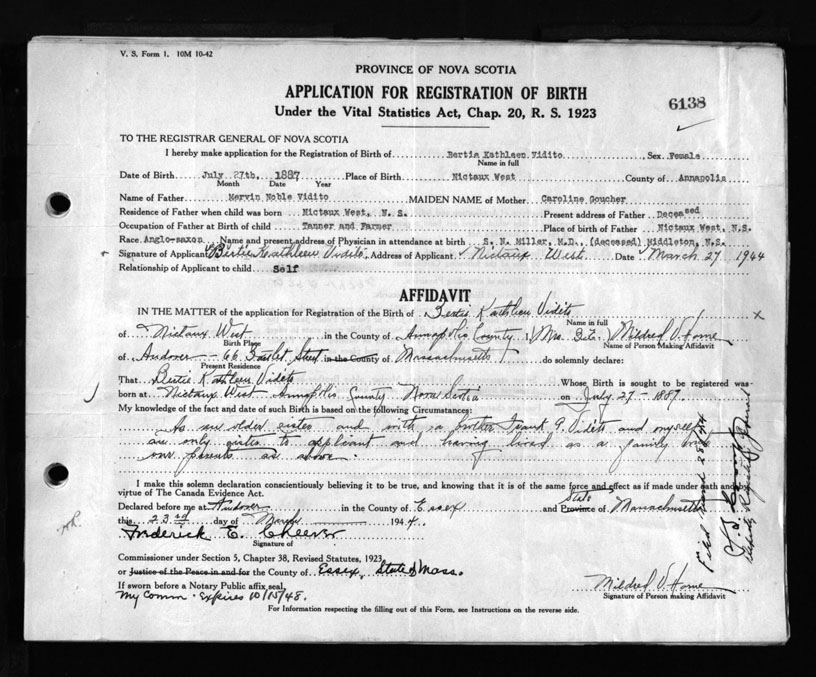 V. S. Form 1. 10M 10-42
PROVINCE OF NOVA SCOTIA
APPLICATION FOR REGISTRATION OF BIRTH
6138
Under the Vital Statistics Act, Chap. 20, R. S. 1923
TO THE REGISTRAR GENERAL OF NOVA SCOTIA
I hereby make application for the Registration of Birth of Bertie Kathleen Vidito Sex Female
Name in full
Date of Birth July 27th, 1887 Place of Birth Nictaux West County of Annapolis
Month Date Year
Name of Father Mervin Noble Vidito MAIDEN NAME of Mother Caroline Goucher
Residence of Father when child was born Nictaux West, N. S. Present address of Father Deceased
Occupation of Father at Birth of child Tanner and Farmer Place of birth of Father Nictaux West, N.S.
Race Anglo-saxon Name and present address of Physician in attendance at birth S. N. Miller, M.D., (deceased) Middleton, N.S.
Signature of Applicant Bertie Kathleen Vidito Address of Applicant Nictaux West Date March 27 1944
Relationship of Applicant to child Self
AFFIDAVIT
IN THE MATTER of the application for the Registration of the Birth of Bertie Kathleen Vidito
Name in full
of Nictaux West in the County of Annapolis County, (Mrs. Mildred V. Horne
Birth Place Name of Person Making Affidavit
of Andover - 66 Street in the County of Massachusetts do solemnly declare:
Present Residence
That Bertie Kathleen Vidito Whose Birth is sought to be registered was
born at Nictaux West Annapolis County Nova Scotia on July 27 - 1887.
My knowledge of the fact and date of such Birth is based on the following Circumstances:
As an older sister and with a brother Frank G. Vidito and myself
are only sister to applicant and having lived as a family with
our parents as above.
I make this solemn declaration conscientiously believing it to be true, and knowing that it is of the same force and effect as if made under oath and by
virtue of The Canada Evidence Act.
Declared before me at Andover in the County of Essex and Province State of Massachusetts
this 23rd day of March 1944.
Frederick E. Cheever
Signature of
Commissioner under Section 5, Chapter 38, Revised Statutes, 1923,
or Justice of the Peace in and for the County of Essex, State of Mass.
If sworn before a Notary Public affix seal.
My Comm. Expires 10/15/48.
Mildred V. Horne
Signature of Person making Affidavit
For Information respecting the filling out of this Form, see Instructions on the reverse side.